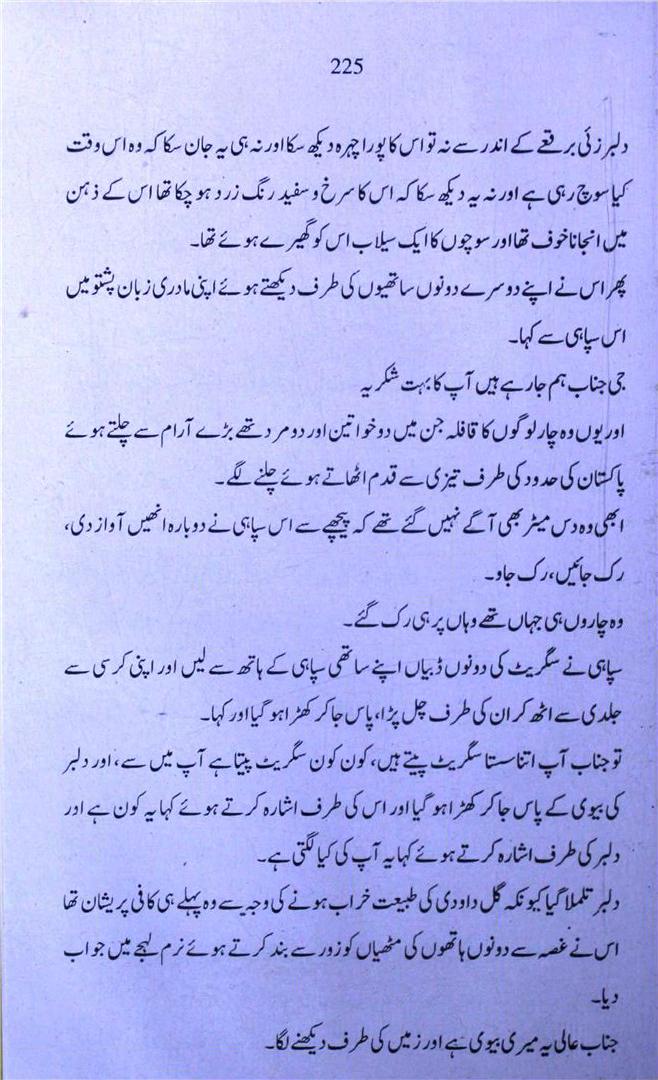 225
دلبر زئی برقعے کے اندر سے نہ تو اس کا پورا چہرہ دیکھ سکا اور نہ ہی یہ جان سکا کہ وہ اس وقت
کیا سوچ رہی ہے اور نہ یہ دیکھ سکا کہ اس کا سرخ و سفید رنگ زرد ہو چکا تھا اس کے ذہن
میں انجانا خوف تھا اور سوچوں کا ایک سیلاب اس کو گھیرے ہوئے تھا۔
پھر اس نے اپنے دوسرے دونوں ساتھیوں کی طرف دیکھتے ہوئے اپنی مادری زبان پشتو میں
اس سپاہی سے کہا۔
جی جناب ہم جا رہے ہیں آپ کا بہت شکریہ
اور یوں وہ چار لوگوں کا قافلہ جن میں دو خواتین اور دو مرد تھے بڑے آرام سے چلتے ہوئے
پاکستان کی حدود کی طرف تیزی سے قدم اٹھاتے ہوئے چلنے لگے۔
ابھی وہ دس میٹر بھی آگے نہیں گئے تھے کہ پیچھے سے اس سپاہی نے دوبارہ انھیں آواز دی،
رک جائیں، رک جاو۔
وہ چاروں ہی جہاں تھے وہاں پر ہی رک گئے۔
سپاہی نے سگریٹ کی دونوں ڈبیاں اپنے ساتھی سپاہی کے ہاتھ سے لیں اور اپنی کرسی سے
جلدی سے اٹھ کر ان کی طرف چل پڑا، پاس جا کر کھڑا ہو گیا اور کہا۔
تو جناب آپ اتنا سستا سگریٹ پیتے ہیں، کون کون سگریٹ پیتا ہے آپ میں سے، اور دلبر
کی بیوی کے پاس جا کر کھڑا ہو گیا اور اس کی طرف اشارہ کرتے ہوئے کہا یہ کون ہے ادر
دلبر کی طرف اشارہ کرتے ہوئے کہا یہ آپ کی کیا لگتی ہے۔
دلبر تلملا گیا کیونکہ گل داودی کی طبیعت خراب ہونے کی وجہ سے وہ پہلے ہی کافی پریشان تھا
اس نے غصہ سے دونوں ہاتھوں کی مٹھیاں کو زور سے بند کرتے ہوئے نرم لہجے میں جواب
دیا۔
جناب عالی یہ میری بیوی ہے اور زمیں کی طرف دیکھنے لگا۔